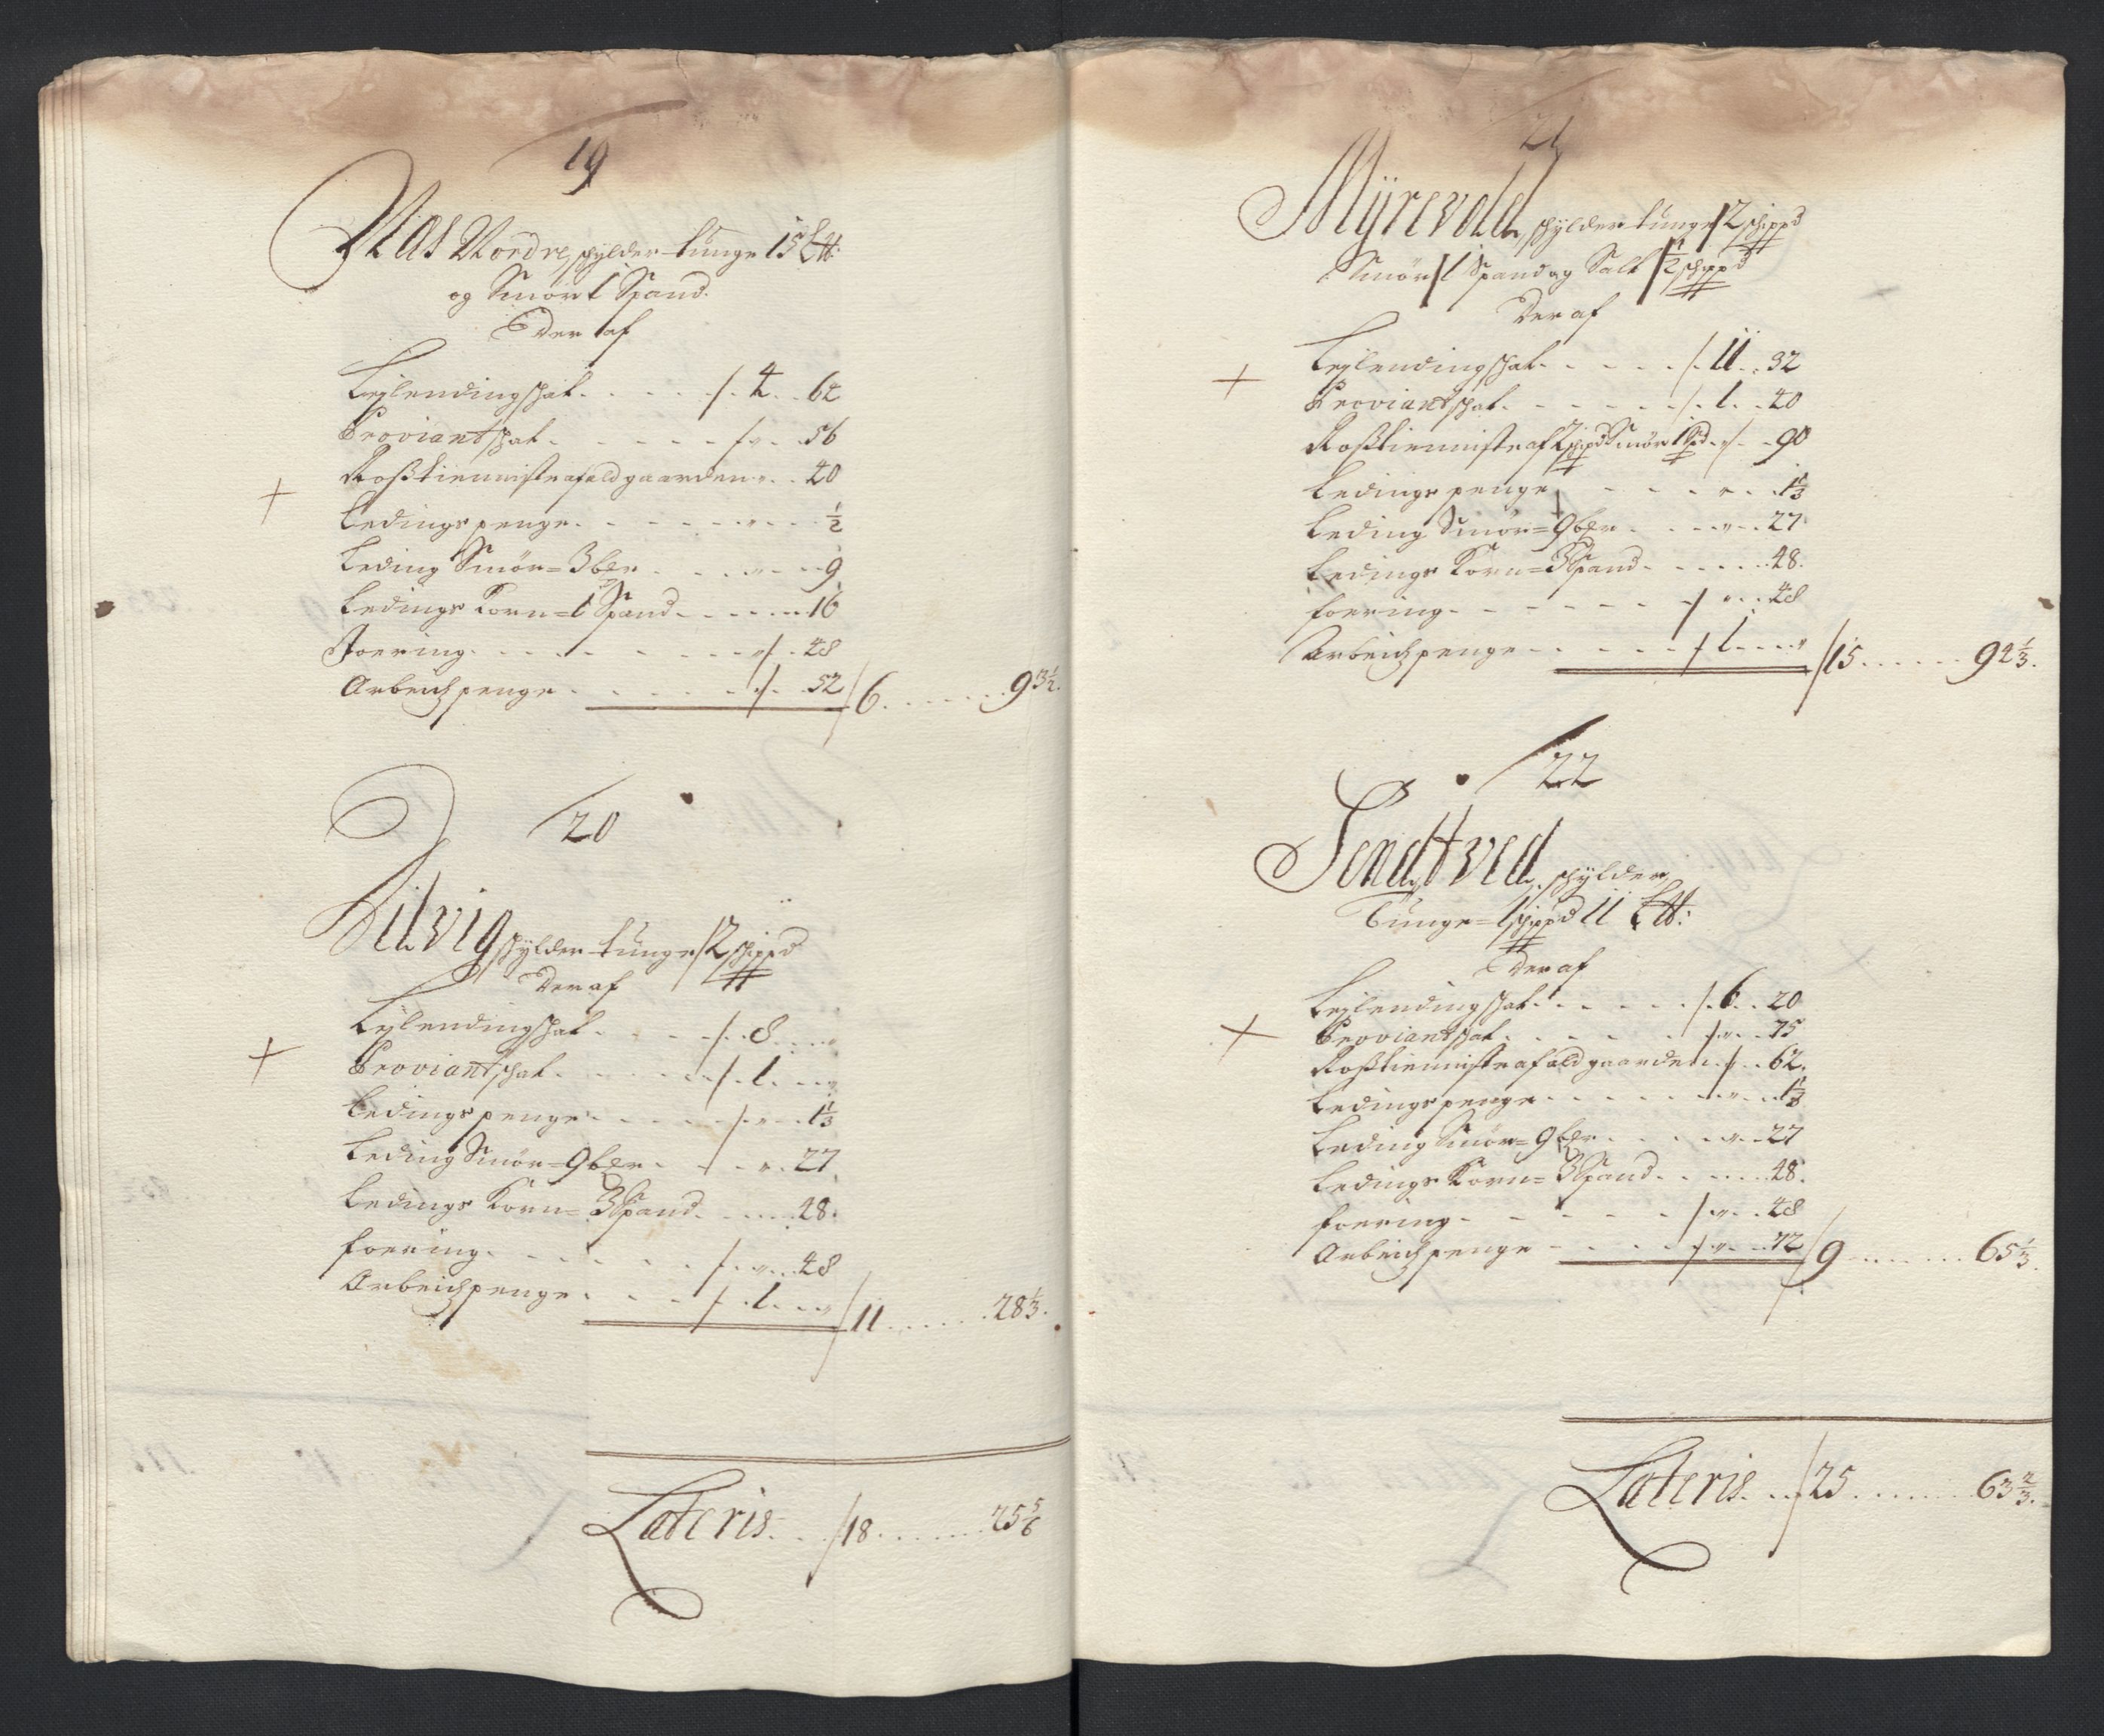 19
Nas Nordre, skylder tunge 15 L℔:
og Smør 1 Spand.
Der af
Leylendingskat . . . . /. 4 . . 62
Proviantskat . . . . . . /. „ . . 56
Rosstienniste af ald gaarden „ . . 40
Ledings penge . . . . . . „ . . . ½
Leding Smør = 3 ber . . . „ . . 9
Ledings Korn = 1 Spand . . . . 16
Foering . . . . . . . „ /. . 48
Arbeidspenge . . . . . . /. . 52 / 6 . . . . . . 93½.
20
Silvig skylder tunge / 2 skippd
Der af
Leylendingskat . . . . /. . 8 . . „
Proviantskat . . . . . /. 1 . . . „
Ledings penge . . . . . /. „ . . 1⅓
Leding Smør = 9 ber . . . „ . . 27.
Ledings Korn = 3 Spand . . . . . 48.
foering . . . . . . /. . „ . . 48
Arbeidspenge . . . . /. . 1 . . . „ / 11 . . . . . . 28⅓.
Lateris . . . / 18 . . . . . . 25⅚
21
Myrevold, skylder tunge / 2 skippd
Smør / 1 Spand og Salt / ½ skippd
Der af
Leylendingskat . . . . . /. 11 . . 32
Proviantskat . . . . . . /. 1 . . 40
Rosstienniste af 2 skippd Smør 1 Spd . „ /. . 90
Ledings penge . . . . „ . . . 1⅓
Leding Smør = 9 ber . . . „ . . 27
Ledings Korn = 3 Spand . . . . . . 48.
foering . . . . . . . / „ . . 48
Arbeidspenge . . . . . / 1 . . . „ / 15 . . . . . . 94⅓.
22
Sendtved, skylder
Tunge = 1 skippd 11 L℔:
Der af
Leylendingskat . . . . . . /. 6 . . 20
Proviantskat . . . . . . /. „ . . 75
Rosstienniste af ald gaarden . /. . 62.
Ledings penge . . . . . . „ . . . 1⅓
Leding Smør = 9 ber . . . . „ . . 27
Ledings Korn = 3 Spand . . . . . . 48.
foering . . . . . . / „ . . 48
Arbeidspenge . . . . . / „ . . 72 / 9 . . . . . . 65⅓.
Lateris . . . / 25 . . . . . . 63⅔.